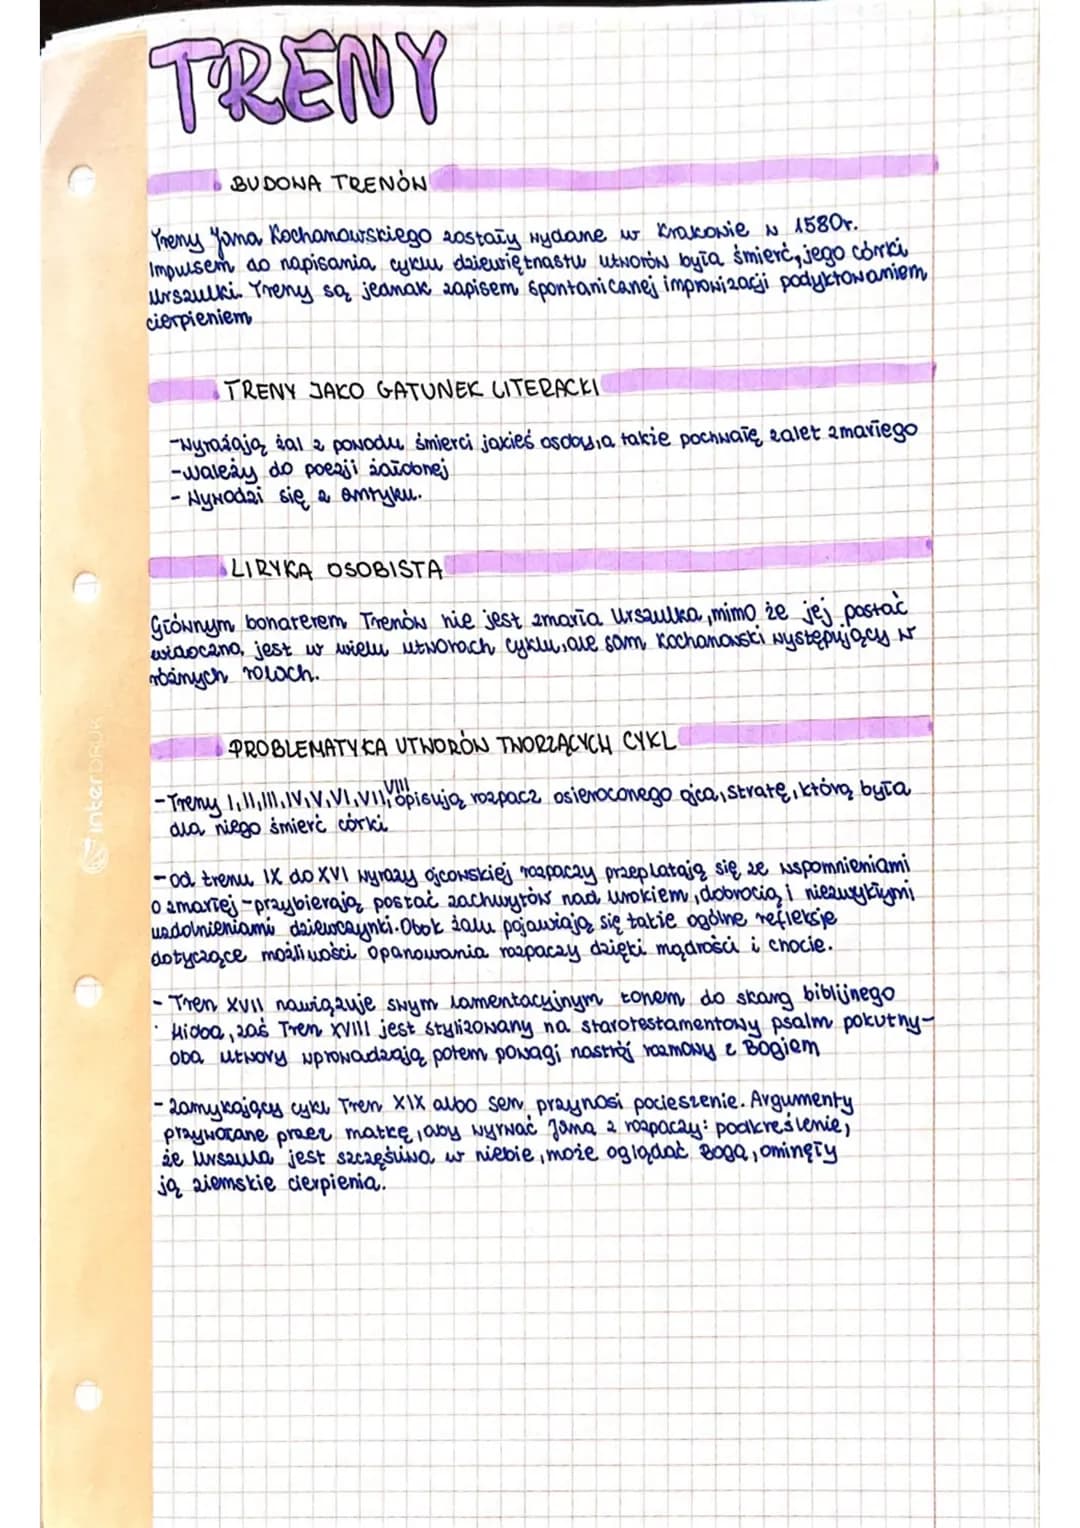 TRENY
BUDOWA TRENÓW
Treny Jana Kochanowskiego zostały wydane w Krakowie w 1580r.
Impulsem do napisania cyklu dziewiętnastu utworów była śmierć, jego córki
Urszulki. Treny są jednak zapisem spontanicznej improwizacji podyktowaniem
cierpieniem
TRENY JAKO GATUNEK LITERACKI
-Wyrażają żal z powodu śmierci jakieś osoby, a także pochwałę zalet zmarłego
-należy do poezji żałobnej
- Wywodzi się z antyku.
LIRYKA OSOBISTA
Głównym bohaterem Trenów nie jest zmarła Urszulka, mimo że jej postać
widoczna, jest w wielu utworach cyklu, ale sam Kochanowski występujący w
różnych rolach.
PROBLEMATYKA UTWORÓW TWORZĄCYCH CYKL
-Treny I, II, III, IV, V, VI, VII, VIII opisują rozpacz osieroconego ojca, stratę, którą była
dla niego śmierć córki
-od trenu IX do XVI wyrazy ojcowskiej rozpaczy przeplatają się ze wspomnieniami
o zmarłej - przybierają postać zachwytów nad urokiem, dobrocią i niezwykłymi
uzdolnieniami dziewczynki. Obok żalu pojawiają się także ogólne refleksje
dotyczące możliwości opanowania rozpaczy dzięki mądrości i cnocie.
- Tren XVII nawiązuje swym lamentacyjnym tonem do skarg biblijnego
Hioba, zaś Tren XVIII jest stylizowany na starotestamentowy psalm pokutny-
oba utwory wprowadzają potem powagi nastrój rozmowy z Bogiem
- Zamykający cykl Tren XIX albo Sen przynosi pocieszenie. Argumenty
przywołane przez matkę, aby wyrwać Jana z rozpaczy: podkreślenie,
że Urszula jest szczęśliwa w niebie, może oglądać Boga, ominęły
ją ziemskie cierpienia.
interDRUK